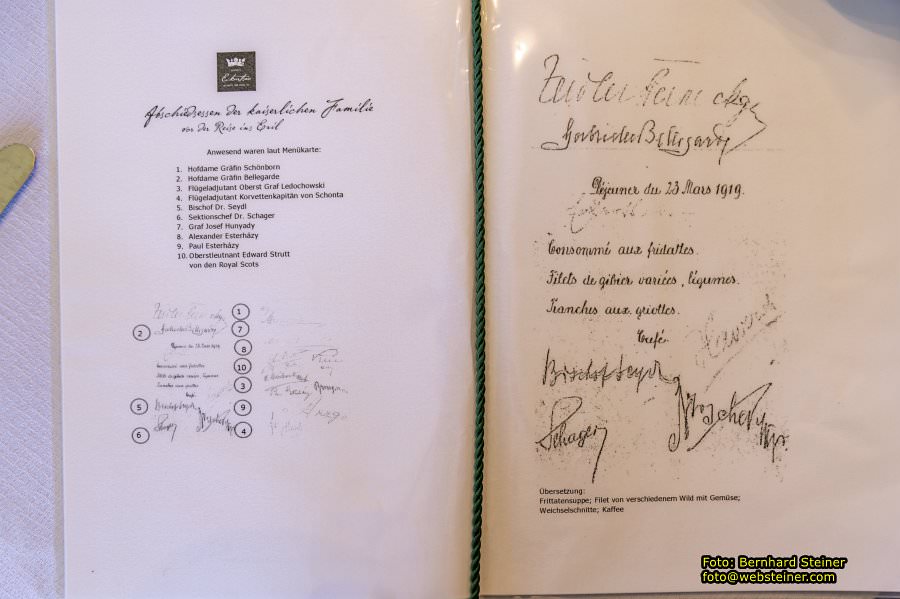 Eckartsau
Abschiedsessen der kaiserlichen Familie
vor der Reise ins Exil
Anwesend waren laut Menükarte:
1. Hofdame Gräfin Schönborn
2. Hofdame Gräfin Bellegarde
3. Flügeladjutant Oberst Graf Ledochowski
4. Flügeladjutant Korvettenkapitän von Schonta
5. Bischof Dr. Seydl
6. Sektionschef Dr. Schager
7. Graf Josef Hunyady
8. Alexander Esterházy
9. Paul Esterházy
10. Oberstleutnant Edward Strutt
von den Royal Scots
1
2
7
8
10
3
5
9
6
4
Bellegarde
Déjeuner du 23 Mars 1919.
Consommé aux fridattes.
Filets de gibier variées, légumes.
Tranches aux griottes.
Café.
Bischof Seydl
Schager
Übersetzung:
Frittatensuppe; Filet von verschiedenem Wild mit Gemüse;
Weichselschnitte; Kaffee
Foto: Bernhard Steiner
foto@websteiner.com